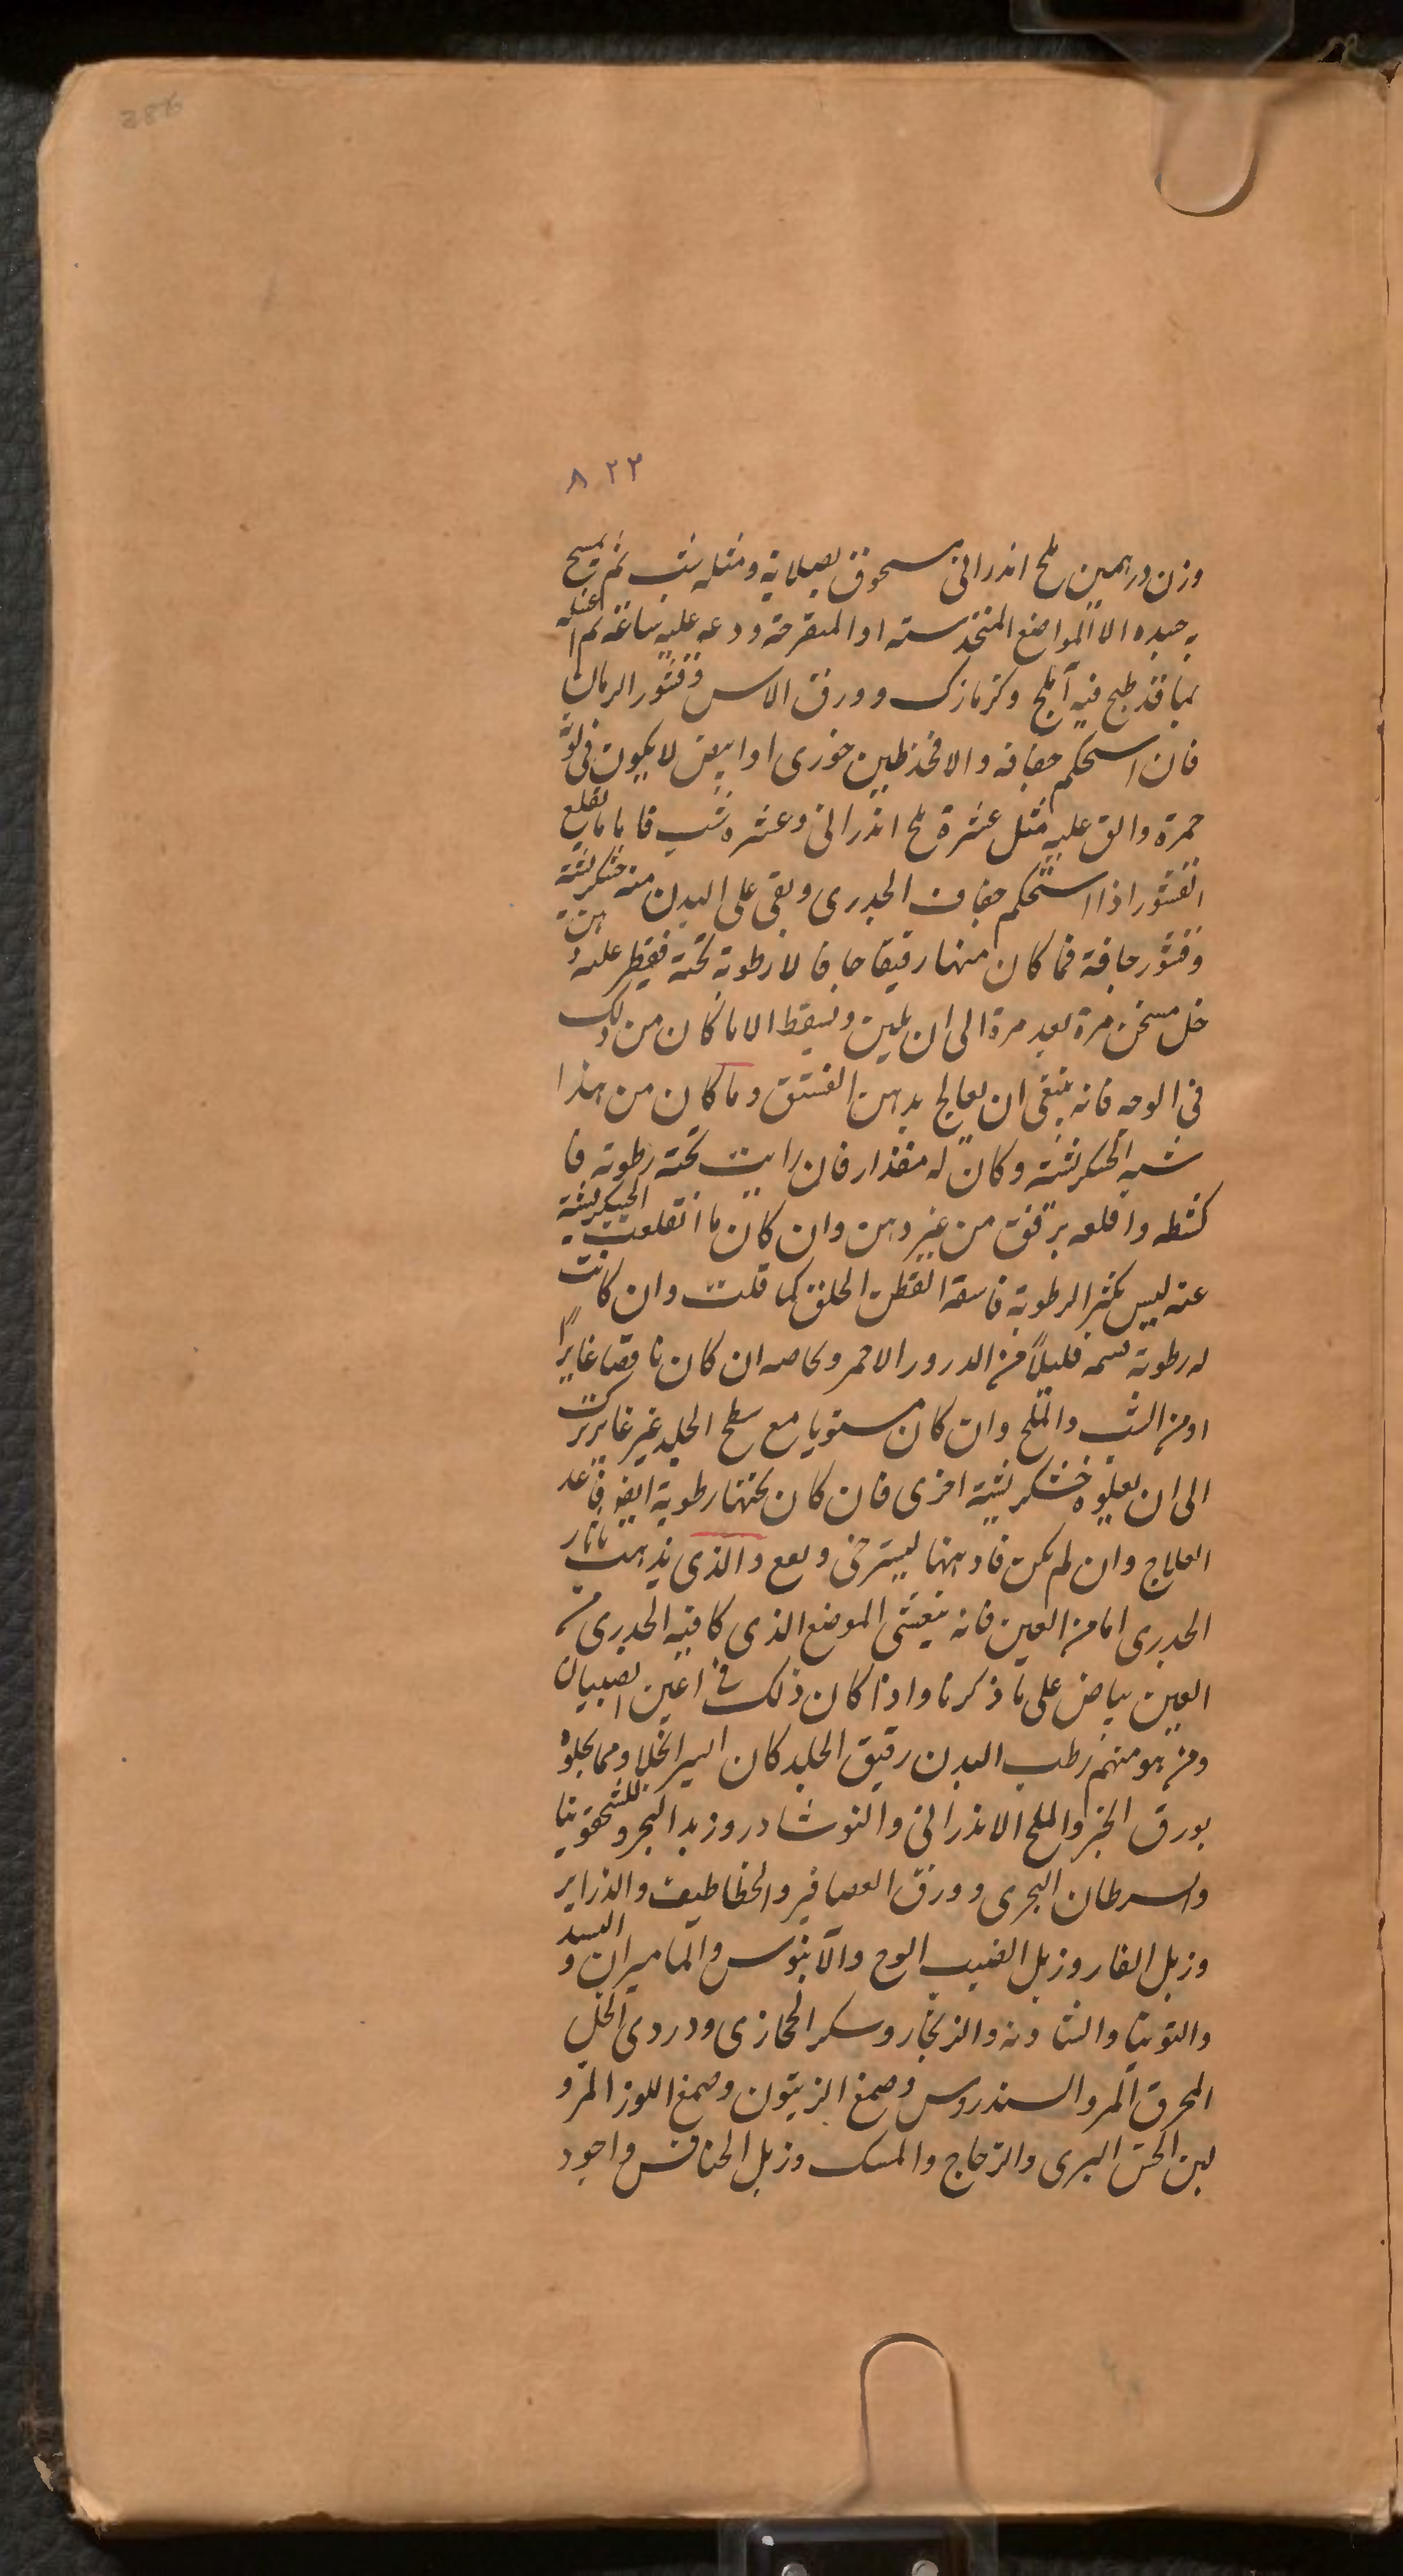 288
٨٢٢
وزن درهمين ملح اندرانى مسحوق بصلاية ومثله شب ثم يمسح
به جسده الا المواضع المتخدسته او المتقرحة ودعه عليه ساعة ثم اغسله
بما قد طبخ فيه آملج وكزمازك وورق الاس وقشور الرمان
فان استحكم جفافه والا فخذ طين خوزى او ابيض لا يكون فى لونه
حمرة والق عليه مثل عشرة ملح اندرانى وعشره شب فاما ما يقلع
القشور اذا استحكم جفاف الجدرى وبقى على البدن منه خشكريشة
وقشور جافة فما كان منها رقيقا جافا لا رطوبة تحته فقطر عليه دهن
خل مسخن مرة بعد مرة الى ان يلين ويسقط الا ما كان من ذلك
فى الوجه فانه ينبغى ان يعالج بدهن الفستق وما كان من هذا
شبه الخشكريشة وكان له مقدار فان رايت تحته رطوبة فا
كشطه واقلعه برفق من غير دهن وان كان ما انقلعت الخشكريشة
عنه ليس بكثير الرطوبة فاسقه القطن الخلق كما قلت وان كانت
له رطوبة فليلاً من الدرور الاحمر وبخاصه ان كان ناقصا غايرًا
او من الشب والملح وان كان مستويا مع سطح الجلد غير غاير ترك
الى ان يعلوه خشكريشة اخرى فان كان تحتها رطوبة ايضا فاعد
العلاج وان لم يكن فادهنها ليسترخى ويقع والذى يذهب باثار
الجدرى اما من العين فانه يغشى الموضع الذى كا فيه الجدرى من
العين بياض على ما ذكرنا واذا كان ذلك فى اعين الصبيان
ومن هو منهم رطب البدن رقيق الجلد كان اسير انخلا ومما يجلوه
بورق الخبز والملح الاندرانى والنوشادر وزبد البحر وللشحقوينا
والسرطان البحرى وورق العصافير والخطاطيف والذراير
وزبل الفار وزبل الضب الوج والآبنوس والماميران والسد
والتوتيا والشادنه والزنجار وسكر الحجازى ودردى الخل
المحرق المر والسندروس وصمغ الزيتون وصمغ اللوز المر و
لبن الخس البرى والزجاج والمسك وزبل الخنافس واجود